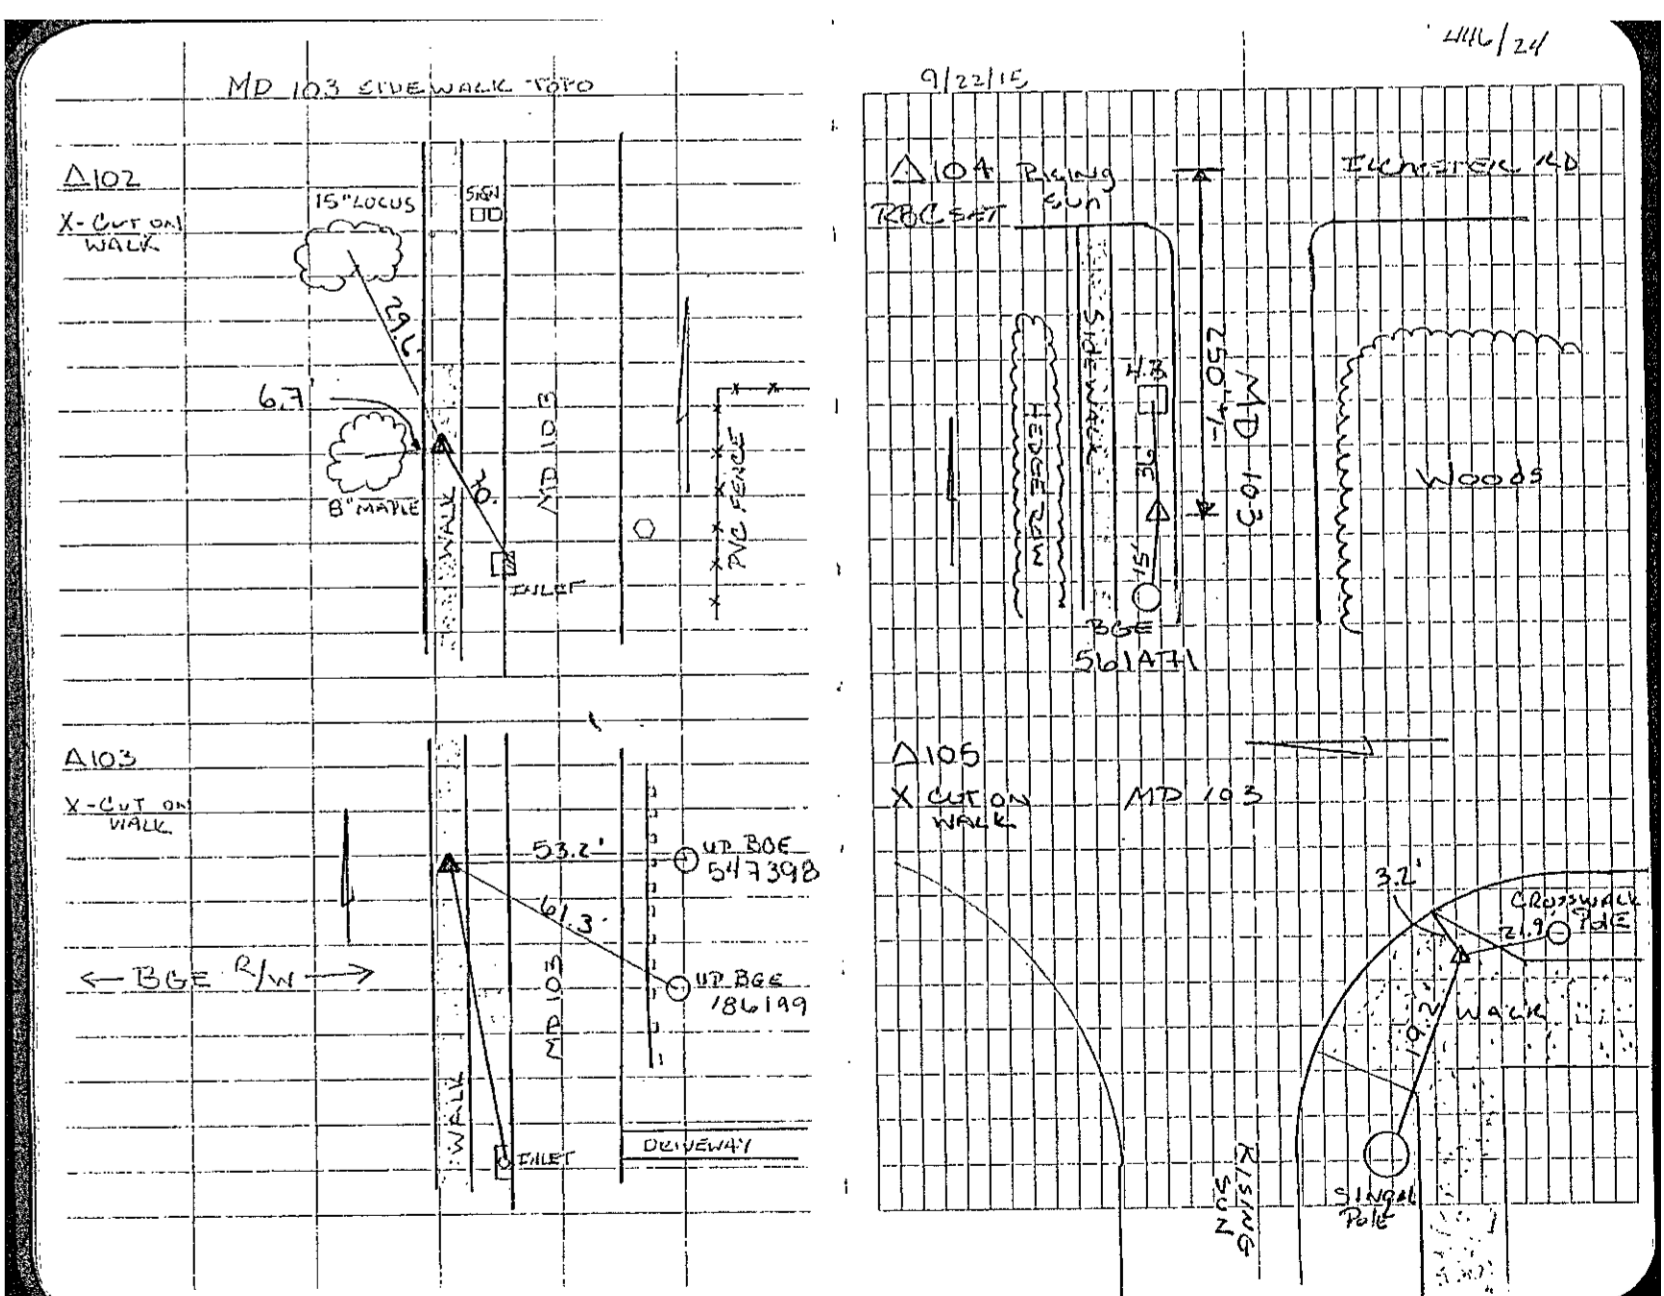 MD 103 SIDEWALK TOPO
△102
X-CUT ON
WALK
15" LOCUS
SIGN
29.6'
6.7'
8" MAPLE
WALK
MD 103
INLET
PVC FENCE
△103
X-CUT ON
WALK
53.2'
UP BGE
547398
61.3'
← BGE R/W →
UP BGE
186199
MD 103
WALK
INLET
DRIVEWAY
446/24
9/22/15
△104
RBC SET
RISING
SUN
ILCHESTER RD
250'+/-
MD 103
SIDEWALK
HEDGE ROW
4.3
36
15'
WOODS
BGE
561A71
△105
X CUT ON
WALK
MD 103
3.2'
CROSSWALK
POLE
21.9
19.2
WALK
RISING
SUN
SINGAL
POLE